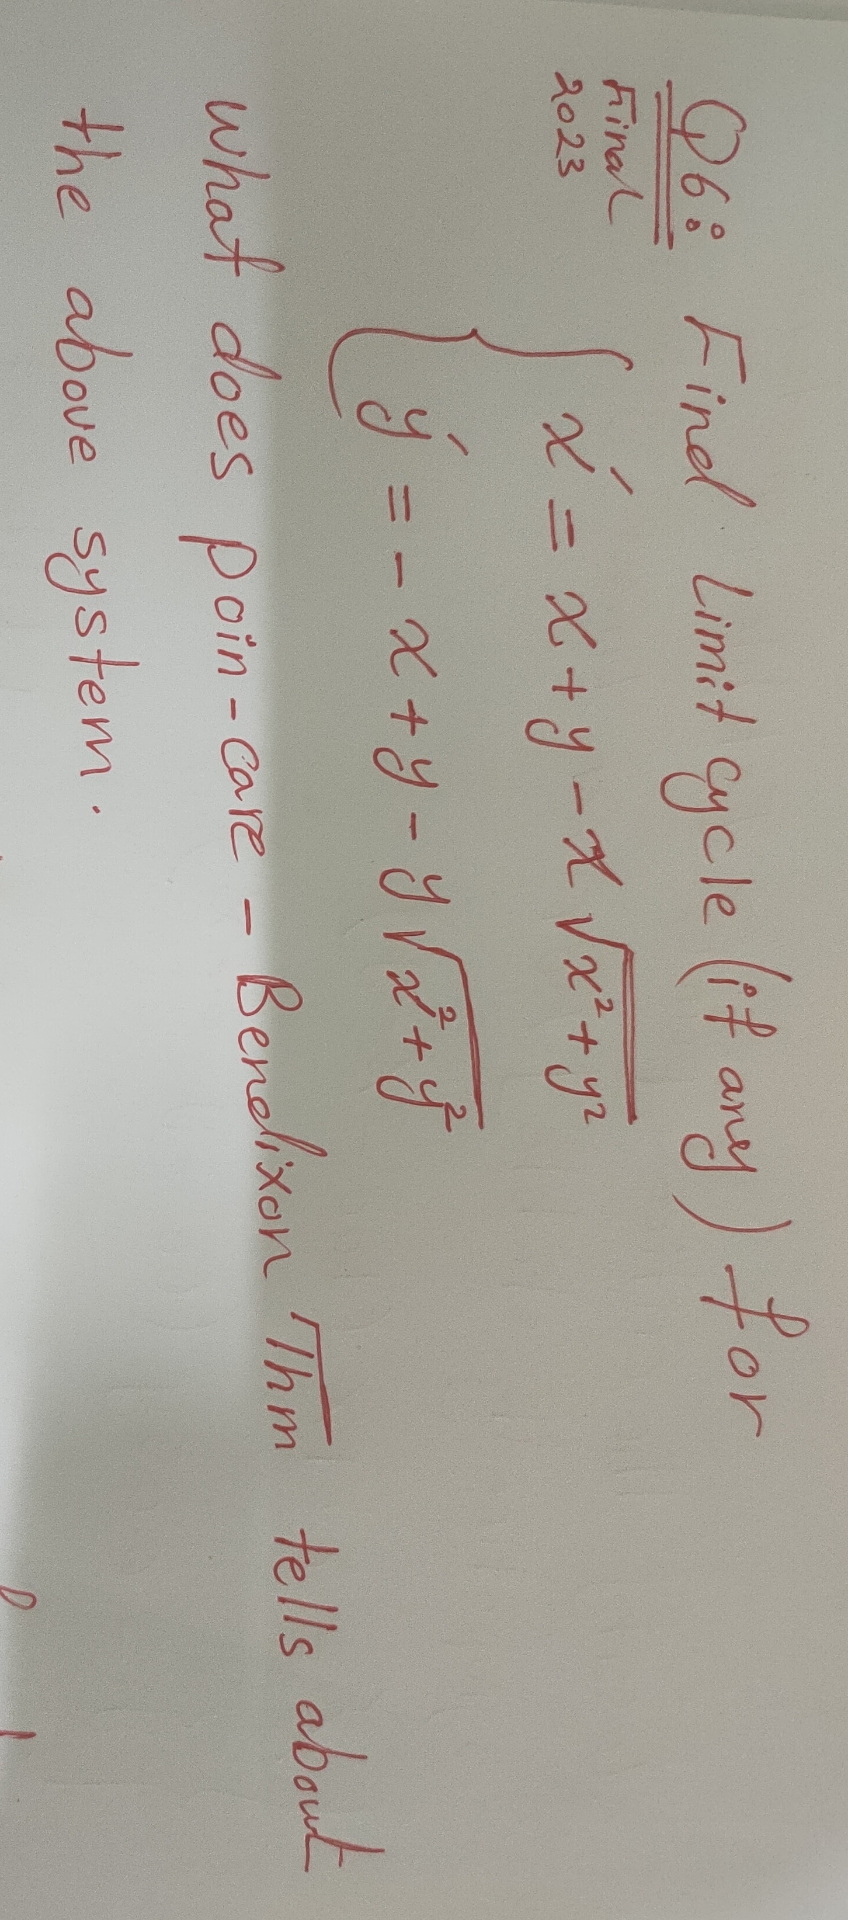 Q6: Find Limit cycle (if any) for
Final
2023
x′ = x + y - x √x² + y²
y′ = - x + y - y √x² + y²
what does poin-care - Bendixon Thm tells about
the above system.